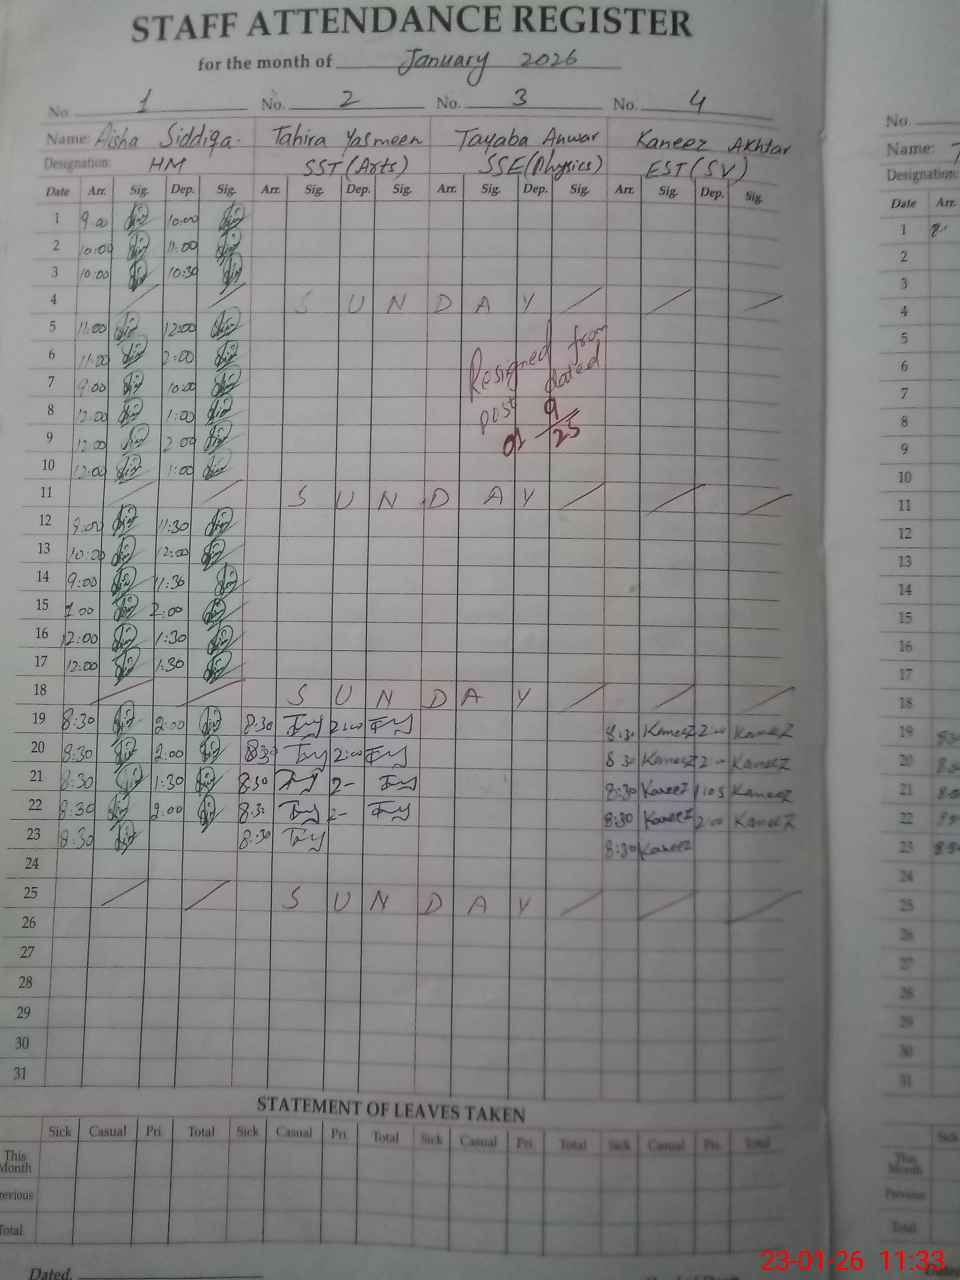 STAFF ATTENDANCE REGISTER
for the month of January 2026
No. 1 No. 2 No. 3 No. 4
Name: Aisha Siddiqa. Tahira Yasmeen Tayaba Anwar Kaneez Akhtar
Designation: HM SST (Arts) SSE (Physics) EST (SV)
Date Arr. Sig. Dep. Sig. Arr. Sig. Dep. Sig. Arr. Sig. Dep. Sig. Arr. Sig. Dep. Sig.
1 9:00 10:00
2 10:00 11:00
3 10:00 10:30
4 S U N D A Y
5 11:00 12:00
6 11:00 2:00
7 9:00 10:00
8 12:00 1:00
9 12:00 2:00
10 12:00 1:00
Resigned from
post dated
01 9/25
11 S U N D A Y
12 9:00 11:30
13 10:00 12:00
14 9:00 11:30
15 1:00 2:00
16 12:00 1:30
17 12:00 1:30
18 S U N D A Y
19 8:30 2:00 8:30 2:00 8:30 Kaneez 2:00 Kaneez
20 8:30 2:00 8:30 2:00 8:30 Kaneez 2:00 Kaneez
21 8:30 1:30 8:30 2- 8:30 Kaneez 1:05 Kaneez
22 8:30 2:00 8:30 2- 8:30 Kaneez 2:00 Kaneez
23 8:30 8:30 8:30 Kaneez
24
25 S U N D A Y
26
27
28
29
30
31
STATEMENT OF LEAVES TAKEN
Sick Casual Pri. Total Sick Casual Pri. Total Sick Casual Pri. Total Sick Casual Pri. Total
This Month
revious
Total
Dated.
No.
Name:
Designation:
Date Arr.
1
2
3
4
5
6
7
8
9
10
11
12
13
14
15
16
17
18
19
20
21
22
23
24
25
26
27
28
29
30
31
Sick
This Month
Previous
Total
23-01-26 11:33